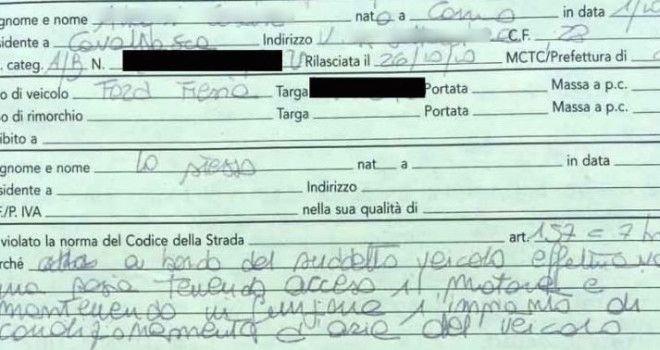 gnome e nome nato a Como in data 1/10
sidente a Cavallasca Indirizzo V. C.F. 23
. categ. A/B N. Rilasciata il 26/10/10 MCTC/Prefettura di
o di veicolo Ford Fiesta Targa Portata Massa a p.c.
o di rimorchio Targa Portata Massa a p.c.
ibito a
gnome e nome lo stesso nat a in data
sidente a Indirizzo
F./P. IVA nella sua qualità di
violato la norma del Codice della Strada art. 157 c 7 b
rché a bordo del suddetto veicolo effettuava
una sosta tenendo acceso il motore e
mantenendo in funzione l'impianto di
condizionamento d'aria del veicolo